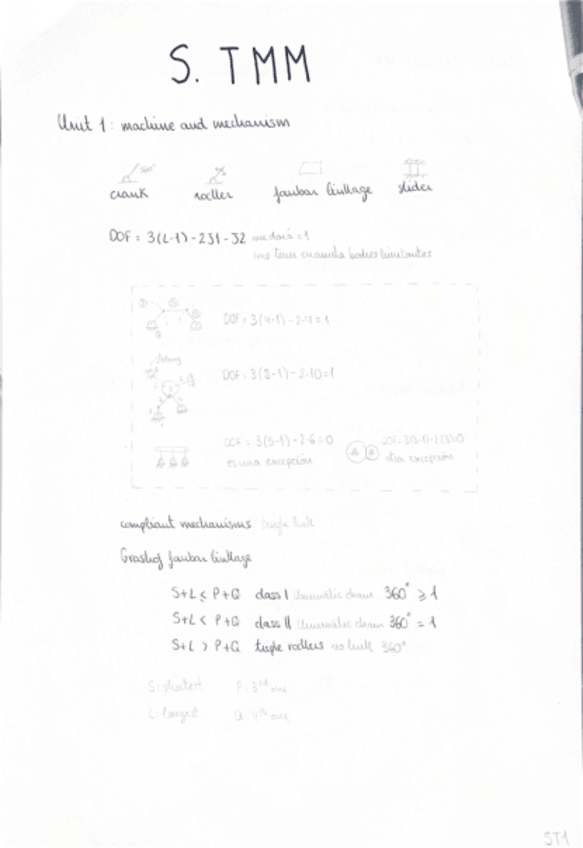 S. TMM
Unit 1: machine and mechanism
360°
crank rocker fourbar linkage slider
DOF = 3(L-1) - 2J1 - J2 = 1
DOF = 3(4-1) - 2·4 = 1
DOF = 3(8-1) - 2·10 = 1
DOF = 3(5-1) - 2·6 = 0
es una excepción otra excepción
compliant mechanisms single link
Grashof fourbar linkage
S+L ≤ P+Q class I kinematic chain 360° ≥ 1
S+L < P+Q class II kinematic chain 360° = 1
S+L > P+Q triple rockers no link 360°
S: shortest P: 3rd one
L: longest Q: 4th one
ST1